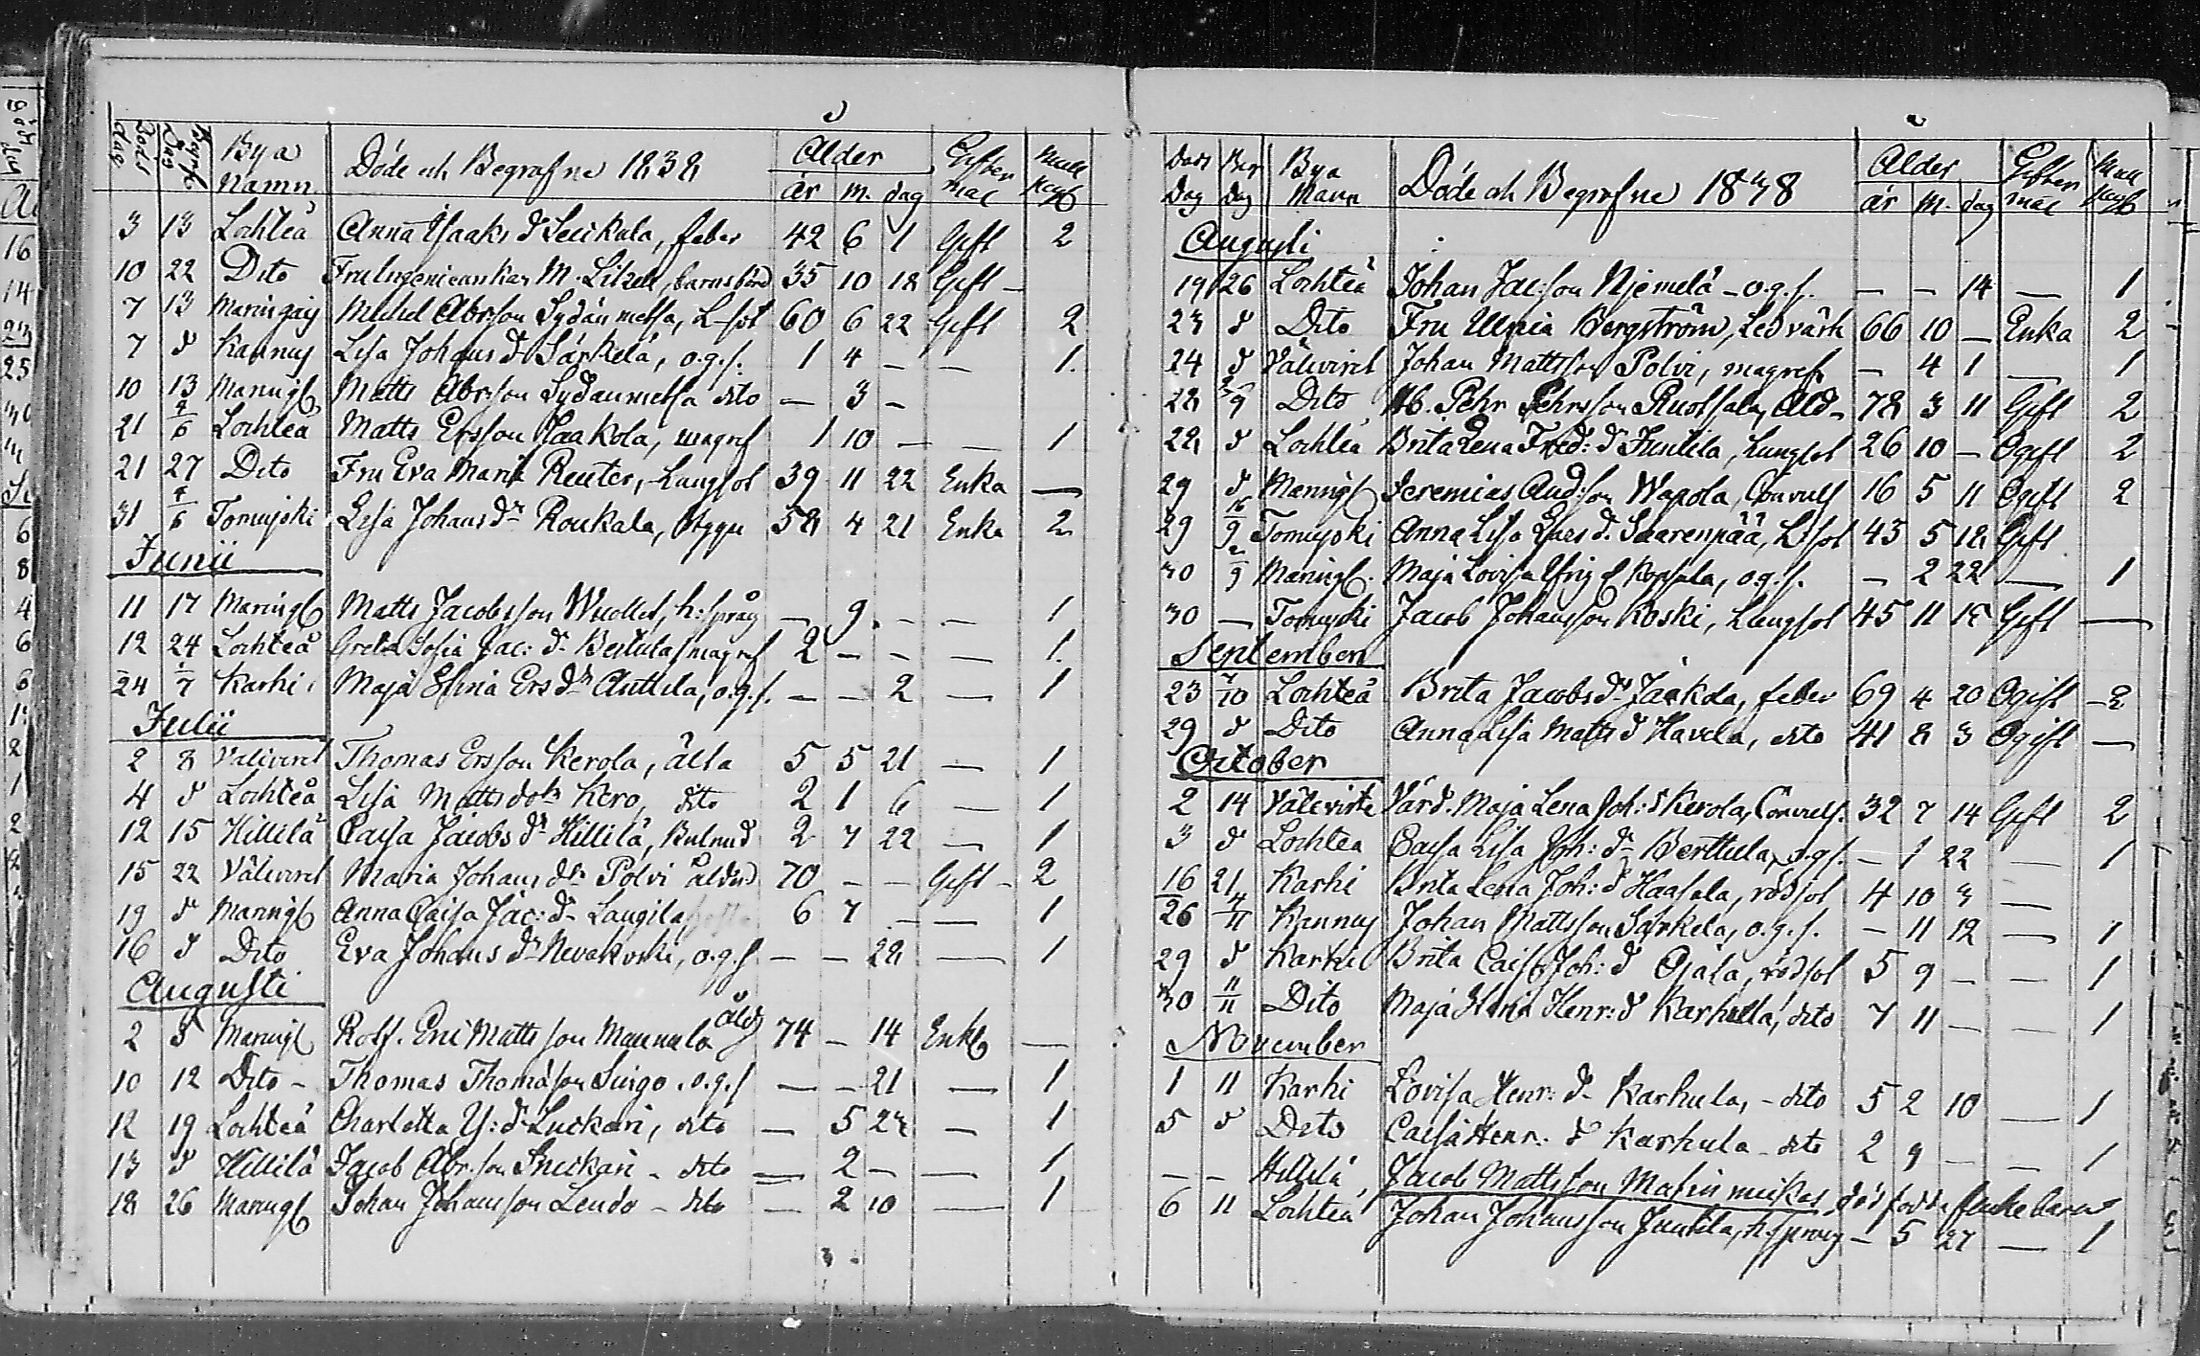 Döds dag Begrafn. Dag Bya namn Döde och Begrafne 1838 Ålder år m. dag Gifter mål Mull kast
3 13 Lochteå Anna Isaaks dr Leukala, feber 42 6 1 Gift 2
10 22 Dito Fru M. Litzell, barnsbörd 35 10 18 Gift –
7 13 Maringais Michel Abrsson Sydänmetsa, L-sot 60 6 22 Gift 2
7 d Kannus Lisa Johans dr Särkelä, o.g.s. 1 4 – – 1.
10 13 Marings Matts Abrsson Sydänmetsa dito – 3 –
21 4/6 Lochteå Matts Ersson Jaakola, magref 1 10 – – 1
21 27 Dito Fru Eva Maria Reuter, Lungsot 39 11 22 Enka –
31 4/6 Tomujoki Lisa Johans dr Roukala, Stygn 58 4 21 Enka 2
Junii
11 17 Marings Matts Jacobsson Wuollet, h: språng – 9. – – 1
12 24 Lochteå Greta Sofia Jac: dr Bertula, magref 2 – – – 1.
24 1/7 Karhi Maja Stina Ers dr Anttila, o.g.s. – – 2 – 1
Julii
2 8 Väliviret Thomas Ersson Kerola, älta 5 5 21 – 1
4 d Lochteå Lisa Matts dotr Kero, dito 2 1 6 – 1
12 15 Hillilä Caisa Jacobs dr Hillilä, Bulnad 2 7 22 – 1
15 22 Väliviret Maria Johans dr Polvi ålderd 70 – – Gift – 2
19 d Marings Anna Caisa Jac: dr Laugila, 6 7 – – 1
16 d Dito Eva Johans dr Nevakoski, o.g.s. – – 28 – 1
Augusti
2 5 Marings Rotf. Eric Matts son Mannula åld 74 – 14 Enkl –
10 12 Dito – Thomas Thomasson Suigo. o.g.s – – 21 – 1
12 19 Lochteå Charlotta Y: dr Luckari, dito – 5 23 – 1
13 d Hillilä Jacob Abr. son Snickari – dito – 2 – – 1
18 26 Marings Johan Johansson Lendo – dito – 2 10 – 1
Döds Dag Ber dag Bya Namn Döde och Begrafne 1838 Ålder år m. dag Gifter mål Mull kast
Augusti
19 26 Lochteå Johan Jac:son Njemelä – o.g.s. – – 14 – 1
23 d Dito Fru Ulrica Bergström, Ledvärk 66 10 – Enka 2
24 d Väliviret Johan Mattsson Polvi, magref – 4 1 – 1
28 2/9 Dito Hb. Pehr Pehrsson Ruotsala, Åld– 78 3 11 Gift 2
28 d Lochteå Brita Lena Fred: dr Juntila, Lungsot 26 10 – Ogift 2
29 d Marings Jeremias And:son Wapola, Convuls 16 5 11 Ogift 2
29 16/9 Tomujoki Anna Lisa Lars d. Saarenpää, L-sot 43 5 18 Gift
30 2/9 Marings. Maja Lovisa Yrig d Kopsala, o.g.s. – 2 22 – 1
30 – Tomujoki Jacob Johansson Koski, Lungsot 45 11 15 Gift –
September
23 7/10 Lochteå Brita Jacobs dr Jaakola, feber 69 4 20 Ogift – 2
29 d Dito Anna Lisa Matts d Havela, dito 41 8 3 Ogift –
October
2 14 Välivirta Värd. Maja Lena Joh: d Kerola, Convuls. 32 7 14 Gift 2
3 d Lochteå Caisa Lisa Joh: dr Berttula, o.g.s. – 1 22 – 1
16 21 Karhi Brita Lena Joh: d Haasala, rödsot 4 10 3 –
26 4/11 Kannus Johan Mattsson Särkelä, o.g.s. – 11 12 – 1
29 d Karhi Brita Caisa Joh: d Ojala, rödsot 5 9 – – 1
30 11/11 Dito Maja Stina Henr: d Karhula, dito 7 11 – – 1
November
1 11 Karhi Lovisa Henr: dr Karhula, – dito 5 2 10 – 1
5 d Dito Caisa Henr: d Karhula – dito 2 9 – – 1
– – Hillilä, Jacob Mattsson Matinmikas, dödfödde flickebarn
6 11 Lochteå Johan Johansson Juntila, h. språng – 5 27 – 1